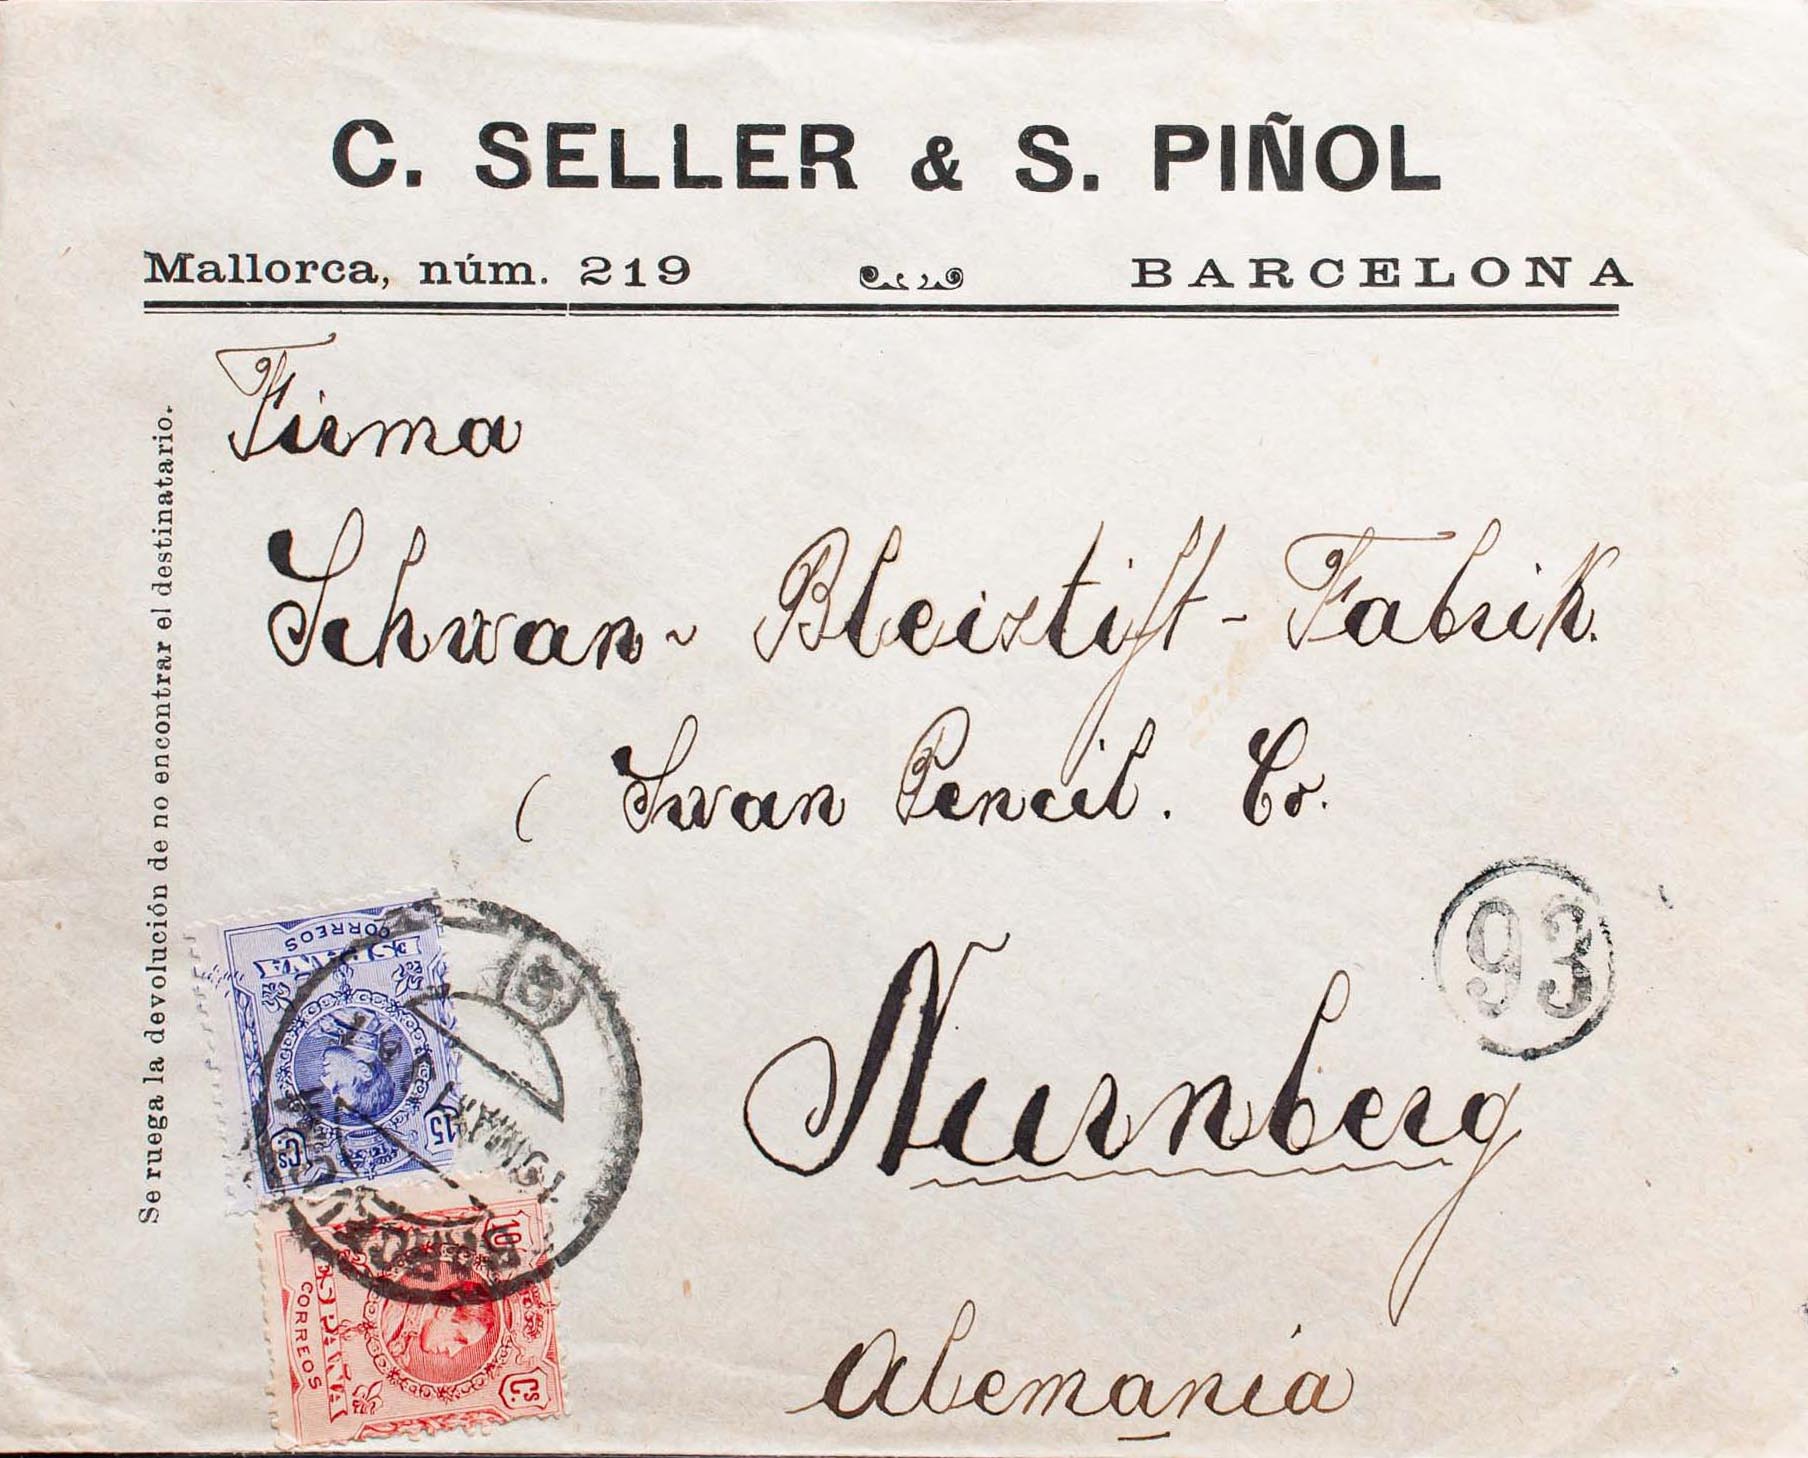 C. SELLER & S. PIÑOL
Mallorca, núm. 219
BARCELONA
Se ruega la devolución de no encontrar el destinatario.
Firma
Schwan - Bleistift - Fabrik.
( Swan Pencil. Co.
93
Nurnberg
Alemania
CORREOS
ESPAÑA
15
Cs
10
Cs
ESPAÑA
CORREOS